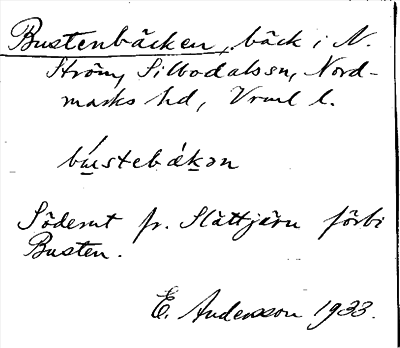 Bustenbäcken, bäck i N.
Ström, Silbodalssn, Nord-
marks hd, Vrml l.
bu̲stebäk̲ən
Söderut fr. Slättjärn förbi
Busten.
E. Andersson 1933.